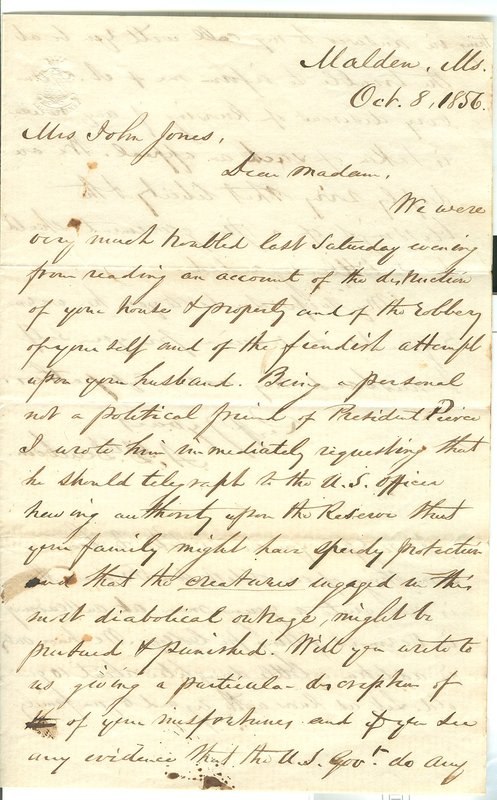 Malden, Ms.
Oct. 8, 1856.
Mrs John Jones,
Dear Madam,
We were
very much troubled last Saturday evening
from reading an account of the destruction
of your house & property and of the robbery
of yourself and of the fiendish attempt
upon your husband. Being a personal
not a political friend of President Pierce
I wrote him immediately requesting that
he should telegraph to the U.S. officer
having authority upon the Reserve that
your family might have speedy protection
and that the creatures engaged in this
most diabolical outrage, might be
pursued & punished. Will you write to
us giving a particular description of
of your misfortunes and if you see
any evidence that the U.S. Govt. do any